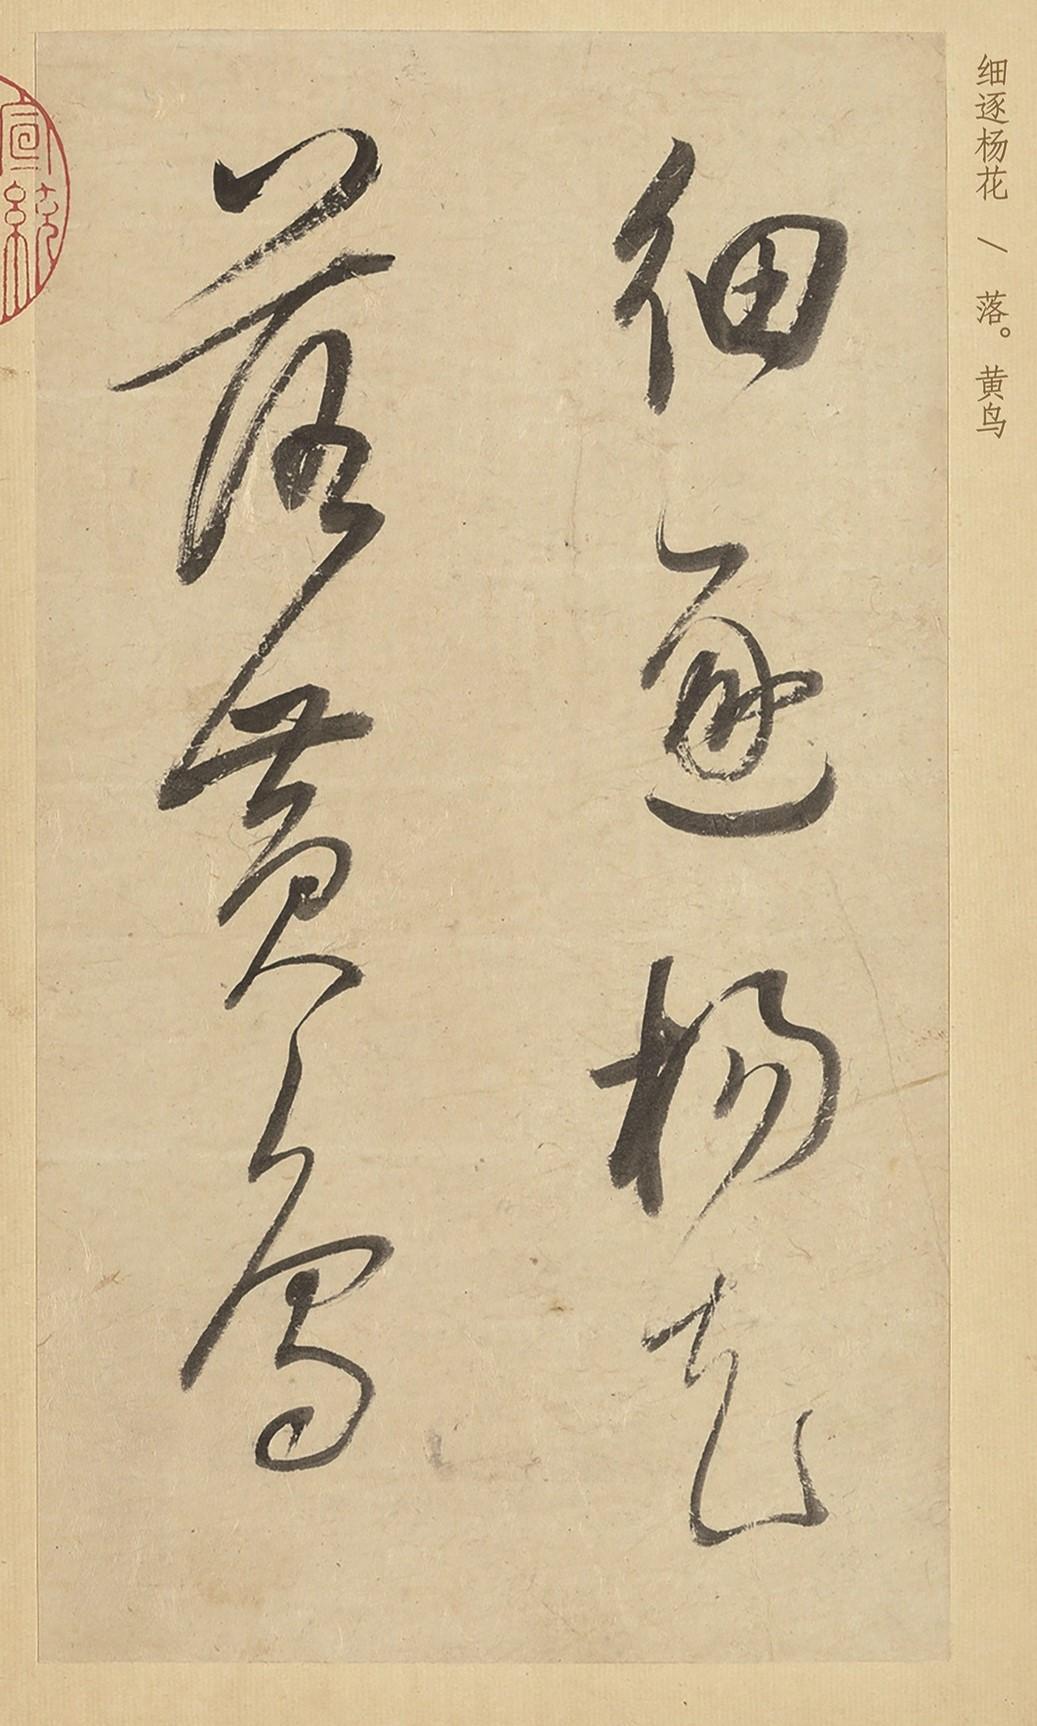 细逐杨花 / 落。黄鸟
細逐楊花
落黄鳥
宣統